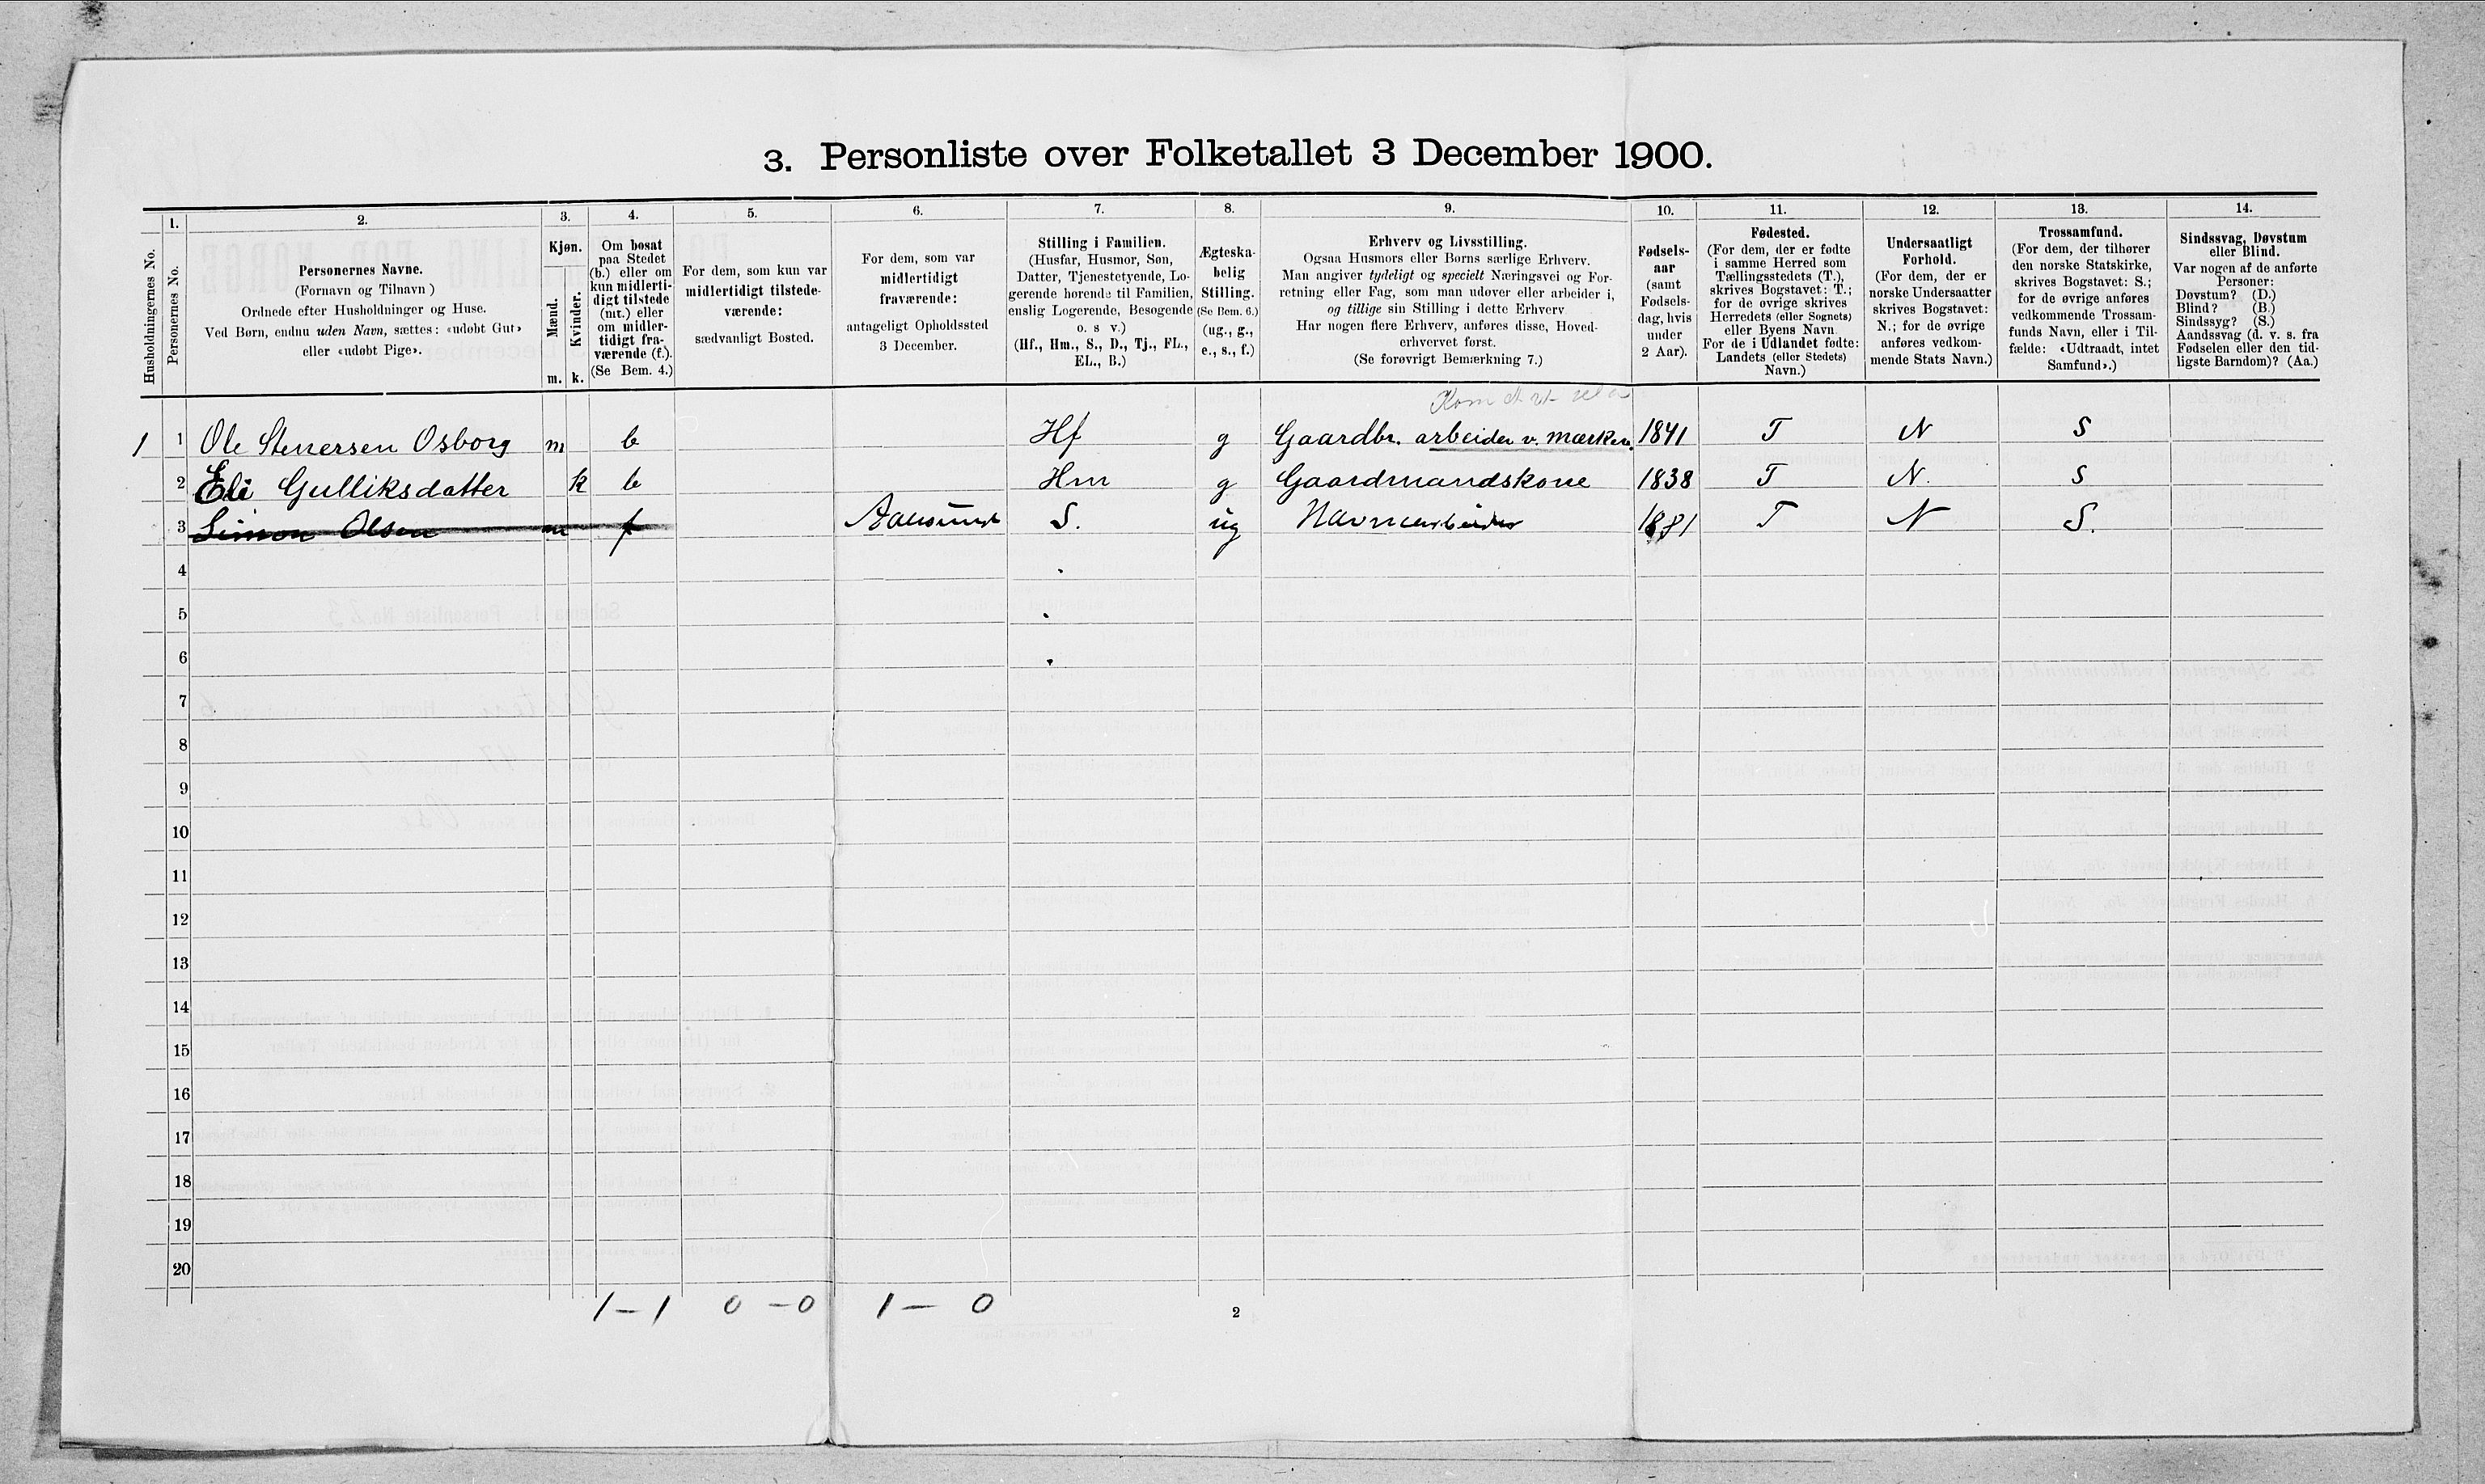 3. Personliste over Folketallet 3 December 1900.
Husholdningernes No.
1.
Personernes No.
2.
Personernes Navne.
(Fornavn og Tilnavn )
Ordnede efter Husholdninger og Huse.
Ved Børn, endnu uden Navn, sættes: «udøbt Gut»
eller «udøbt Pige».
3.
Kjøn.
Mænd.
Kvinder.
m. k.
4.
Om bosat
paa Stedet
(b.) eller om
kun midlerti-
digt tilstede
(mt.) eller
om midler-
tidigt fra-
værende (f.).
(Se Bem. 4.)
5.
For dem, som kun var
midlertidigt tilstede-
værende:
sædvanligt Bosted.
6.
For dem, som var
midlertidigt
fraværende:
antageligt Opholdssted
3 December.
7.
Stilling i Familien.
(Husfar, Husmor, Søn,
Datter, Tjenestetyende, Lo-
gerende hørende til Familien,
enslig Logerende, Besøgende
o. s v.)
(Hf., Hm., S., D., Tj., FL.,
EL., B.)
8.
Ægteska-
belig
Stilling.
(Se Bem. 6.)
(ug., g.,
e., s., f.)
9.
Erhverv og Livsstilling.
Ogsaa Husmors eller Børns særlige Erhverv.
Man angiver tydeligt og specielt Næringsvei og For-
retning eller Fag, som man udøver eller arbeider i,
og tillige sin Stilling i dette Erhverv
Har nogen flere Erhverv, anføres disse, Hoved-
erhvervet først.
(Se forøvrigt Bemærkning 7.)
10.
Fødsels-
aar
(samt
Fødsels-
dag, hvis
under
2 Aar).
11.
Fødested.
(For dem, der er fødte
i samme Herred som
Tællingsstedets (T.),
skrives Bogstavet: T.;
for de øvrige skrives
Herredets (eller Sognets)
eller Byens Navn
For de i Udlandet fødte:
Landets (eller Stedets)
Navn.)
12.
Undersaatligt
Forhold.
(For dem, der er
norske Undersaatter
skrives Bogstavet:
N.; for de øvrige
anføres vedkom-
mende Stats Navn.)
13.
Trossamfund.
(For dem, der tilhører
den norske Statskirke,
skrives Bogstavet: S.;
for de øvrige anføres
vedkommende Trossam-
funds Navn, eller i Til-
fælde: «Udtraadt, intet
Samfund».)
14.
Sindssvag, Døvstum
eller Blind.
Var nogen af de anførte
Personer:
Døvstum? (D.)
Blind? (B.)
Sindssyg? (S.)
Aandssvag (d. v. s. fra
Fødselen eller den tid-
ligste Barndom)? (Aa.)
1 1 Ole Stenersen Osborg m b Hf g Gaardbr. arbeider v. mærken. 1841 T N S
2 Eli Gulliksdatter k b Hm g Gaardmandskone 1838 T N. S
3 Simon Olsen m f Aalesund S. ug Havnearbeider 1881 T N S.
4
5
6
7
8
9
10
11
12
13
14
15
16
17
18
19
20
1 – 1 0 – 0 1 – 0
2